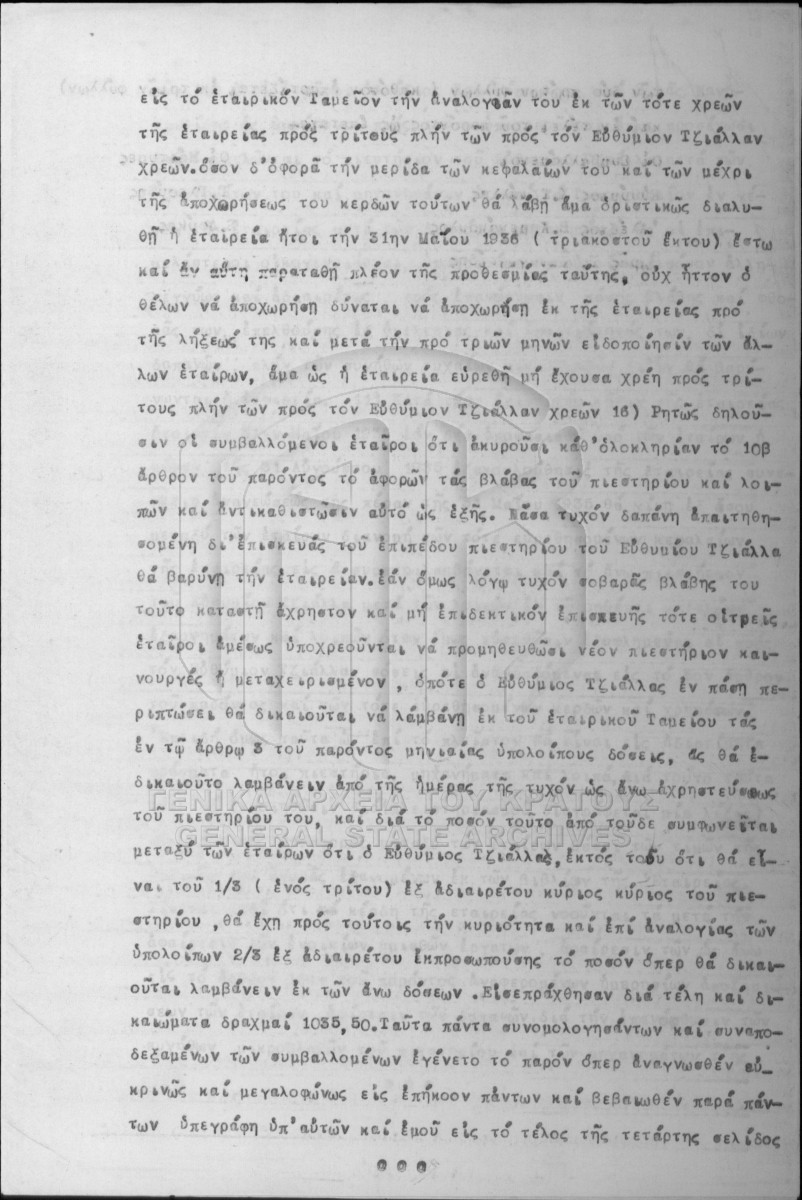 εἰς τό ἑταιρικόν Ταμεῖον τήν ἀναλογίαν του ἐκ τῶν τότε χρεῶν
τῆς ἑταιρείας πρός τρίτους πλήν τῶν πρός τόν Εὐθύμιον Τζιάλλαν
χρεῶν.ὅσον δ'ἀφορᾶ τήν μερίδα τῶν κεφαλαίων του καί τῶν μέχρι
τῆς ἀποχωρήσεως του κερδῶν τούτων θά λάβῃ ἅμα ὁριστικῶς διαλυ-
θῇ ἡ ἑταιρεία ἤτοι τήν 31ην Μαΐου 1936 ( τριακοστοῦ ἕκτου) ἔστω
καί ἄν αὕτη παραταθῇ πλέον τῆς προθεσμίας ταύτης, οὐχ ἧττον ὁ
θέλων νά ἀποχωρήσῃ δύναται νά ἀποχωρήσῃ ἐκ τῆς ἑταιρείας πρό
τῆς λήξεώς της καί μετά τήν πρό τριῶν μηνῶν εἰδοποίησίν τῶν ἄλ-
λων ἑταίρων, ἅμα ὡς ἡ ἑταιρεία εὑρεθῇ μή ἔχουσα χρέη πρός τρί-
τους πλήν τῶν πρός τόν Εὐθύμιον Τζιάλλαν χρεῶν 16) Ρητῶς δηλοῦ-
σιν οἱ συμβαλλόμενοι ἑταῖροι ὅτι ἀκυροῦσι καθ'ὁλοκληρίαν τό 10β
ἄρθρον τοῦ παρόντος τό ἀφορῶν τάς βλάβας τοῦ πιεστηρίου καί λοι-
πῶν καί ἀντικαθιστῶσιν αὐτό ὡς ἑξῆς. Πᾶσα τυχόν δαπάνη ἀπαιτηθη-
σομένη δι'ἐπισκευάς τοῦ ἐπιπέδου πιεστηρίου τοῦ Εὐθυμίου Τζιάλλα
θά βαρύνῃ τήν ἑταιρείαν.ἐάν ὅμως λόγῳ τυχόν σοβαρᾶς βλάβης του
τοῦτο καταστῇ ἄχρηστον καί μή ἐπιδεκτικόν ἐπισκευῆς τότε οἱτρεῖς
ἑταῖροι ἀμέσως ὑποχρεοῦνται νά προμηθευθῶσι νέον πιεστήριον και-
νουργές ἤ μεταχειρισμένον , ὁπότε ὁ Εὐθύμιος Τζιάλλας ἐν πάσῃ πε-
ριπτώσει θά δικαιοῦται νά λαμβάνῃ ἐκ τοῦ ἑταιρικοῦ Ταμείου τάς
ἐν τῷ ἄρθρῳ 3 τοῦ παρόντος μηνιαίας ὑπολοίπους δόσεις, ἅς θά ἐ-
δικαιοῦτο λαμβάνειν ἀπό τῆς ἡμέρας τῆς τυχόν ὡς ἄνω ἀχρηστεύσεως
τοῦ πιεστηρίου του, καί διά τό ποσόν τοῦτο ἀπό τοῦδε συμφωνεῖται
μεταξύ τῶν ἑταίρων ὅτι ὁ Εὐθύμιος Τζιάλλας,ἐκτός τοῦ ὅτι θά εἶ-
ναι τοῦ 1/3 ( ἑνός τρίτου) ἐξ ἀδιαιρέτου κύριος κύριος τοῦ πιε-
στηρίου ,θά ἔχῃ πρός τούτοις τήν κυριότητα καί ἐπί ἀναλογίας τῶν
ὑπολοίπων 2/3 ἐξ ἀδιαιρέτου ἐκπροσωπούσης τό ποσόν ὅπερ θά δικαι-
οῦται λαμβάνειν ἐκ τῶν ἄνω δόσεων .Εἰσεπράχθησαν διά τέλη καί δι-
καιώματα δραχμαί 1035,50.Ταῦτα πάντα συνομολογησάντων καί συναπο-
δεξαμένων τῶν συμβαλλομένων ἐγένετο τό παρόν ὅπερ ἀναγνωσθέν εὐ_
κρινῶς καί μεγαλοφώνως εἰς ἐπήκοον πάντων καί βεβαιωθέν παρά πάν-
των ὑπεγράφη ὑπ'αὐτῶν καί ἐμοῦ εἰς τό τέλος τῆς τετάρτης σελίδος
ΓΕΝΙΚΑ ΑΡΧΕΙΑ ΤΟΥ ΚΡΑΤΟΥΣ
GENERAL STATE ARCHIVES